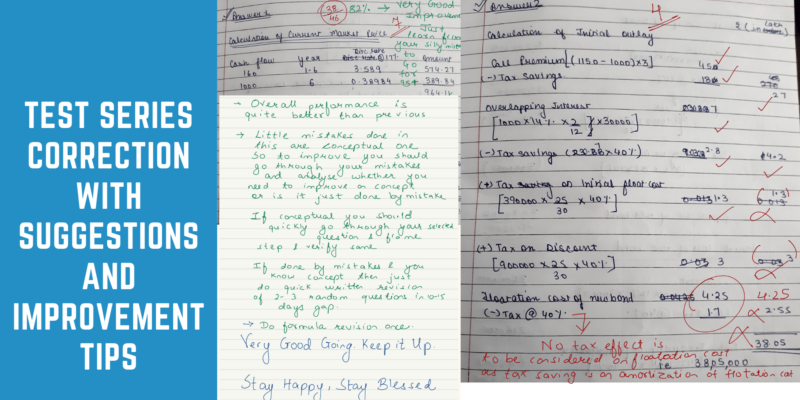 TEST SERIES
CORRECTION
WITH
SUGGESTIONS
AND
IMPROVEMENT
TIPS
Answer 1
38/46
82%
→ Very Good
Improvement
Just
learn from
your silly
to
go
for
95+
Calculation of Current Market Price
Cash flow year @17% Amount
160 1-6 3.589 574.27
1000 6 0.38984 389.84
964.12
→ Overall performance is
quite better than previous
→ Little mistakes done in
this are conceptual one
So to improve you should
go through your mistakes
and analyse whether you
need to improve on concept
or is it just done by mistake
If conceptual you should
quickly go through your selected
question & frame
step & verify same
If done by mistakes & you
know concept then just
do quick written revision
of 2-3 random questions in
days gap.
→ Do formula revision once.
Very Good Going Keep it Up.
Stay Happy, Stay Blessed
Answer 2
4
Calculation of Initial outlay
Call Premium [(1150-1000)×3] 450
(-) Tax Savings 180
270
Overlapping Interest
[1000×14%×2/12×30000]
(-) Tax savings
(+) Tax on Initial float cost
[390000×25/30×40%] 1.3
(+) Tax on Discount
[900000×25/30×40%] 3
Floatation cost of new bond 4.25 4.25
(-) Tax @ 40% 1.7 2.55
38.05
ie 3805,000
No tax effect is
to be considered on floatation cost
as tax saving is on amortization of flotation cost